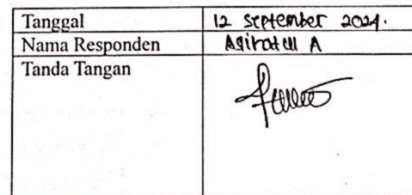 Tanggal 12 September 2024.
Nama Responden A
Tanda Tangan